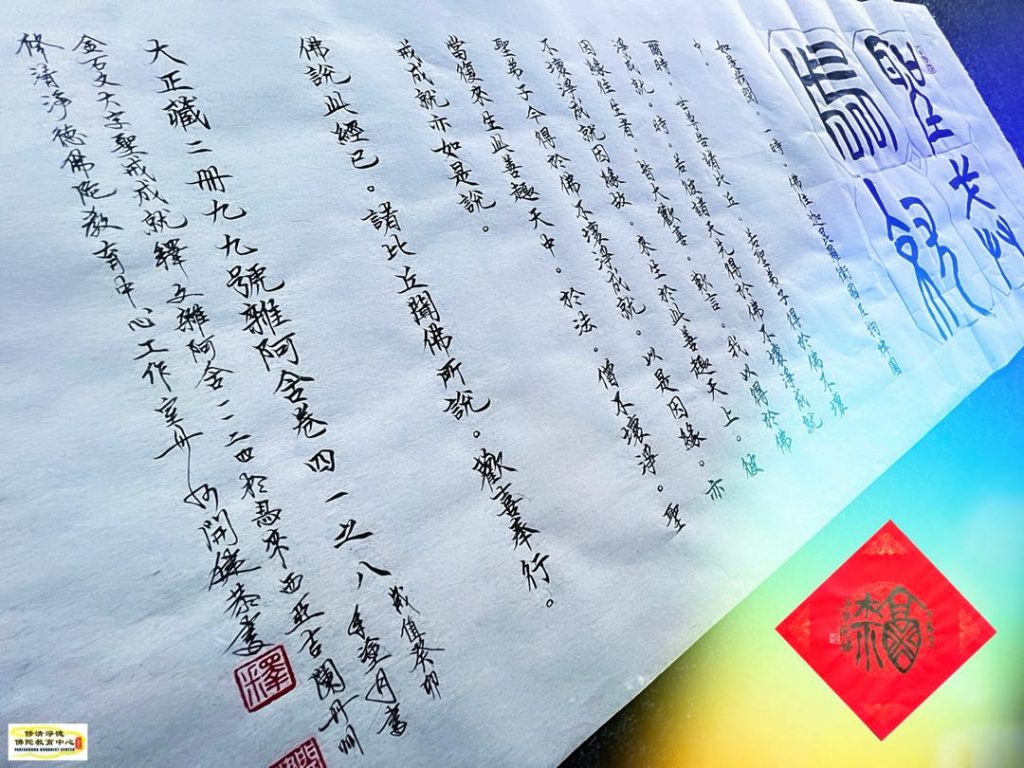 聖戒成就
如是我聞。一時。佛住迦毘羅衛國尼拘律園
中。
爾時。世尊告諸比丘。若聖弟子得於佛不壞
淨成就。時。若彼諸天先得於佛不壞淨成就
因緣往生者。皆大歡喜。歎言。我以得於佛
不壞淨成就因緣故。來生於此善趣天上。彼
聖弟子今得於佛不壞淨成就。以是因緣。亦
當復來生此善趣天中。於法。僧不壞淨。聖
戒成就亦如是說。
佛說此經已。諸比丘聞佛所說。歡喜奉行。
大正藏二冊九九號雜阿含卷四一 五八
歲值癸卯
年壹月書
金石文大字聖戒成就釋文雜阿含一一二四於馬來西亞吉蘭丹州
修清淨德佛陀教育中心工作室丹州開鍵恭書
釋
福
修清淨德
佛陀教育中心
PARISUDDHA BUDDHIST CENTER